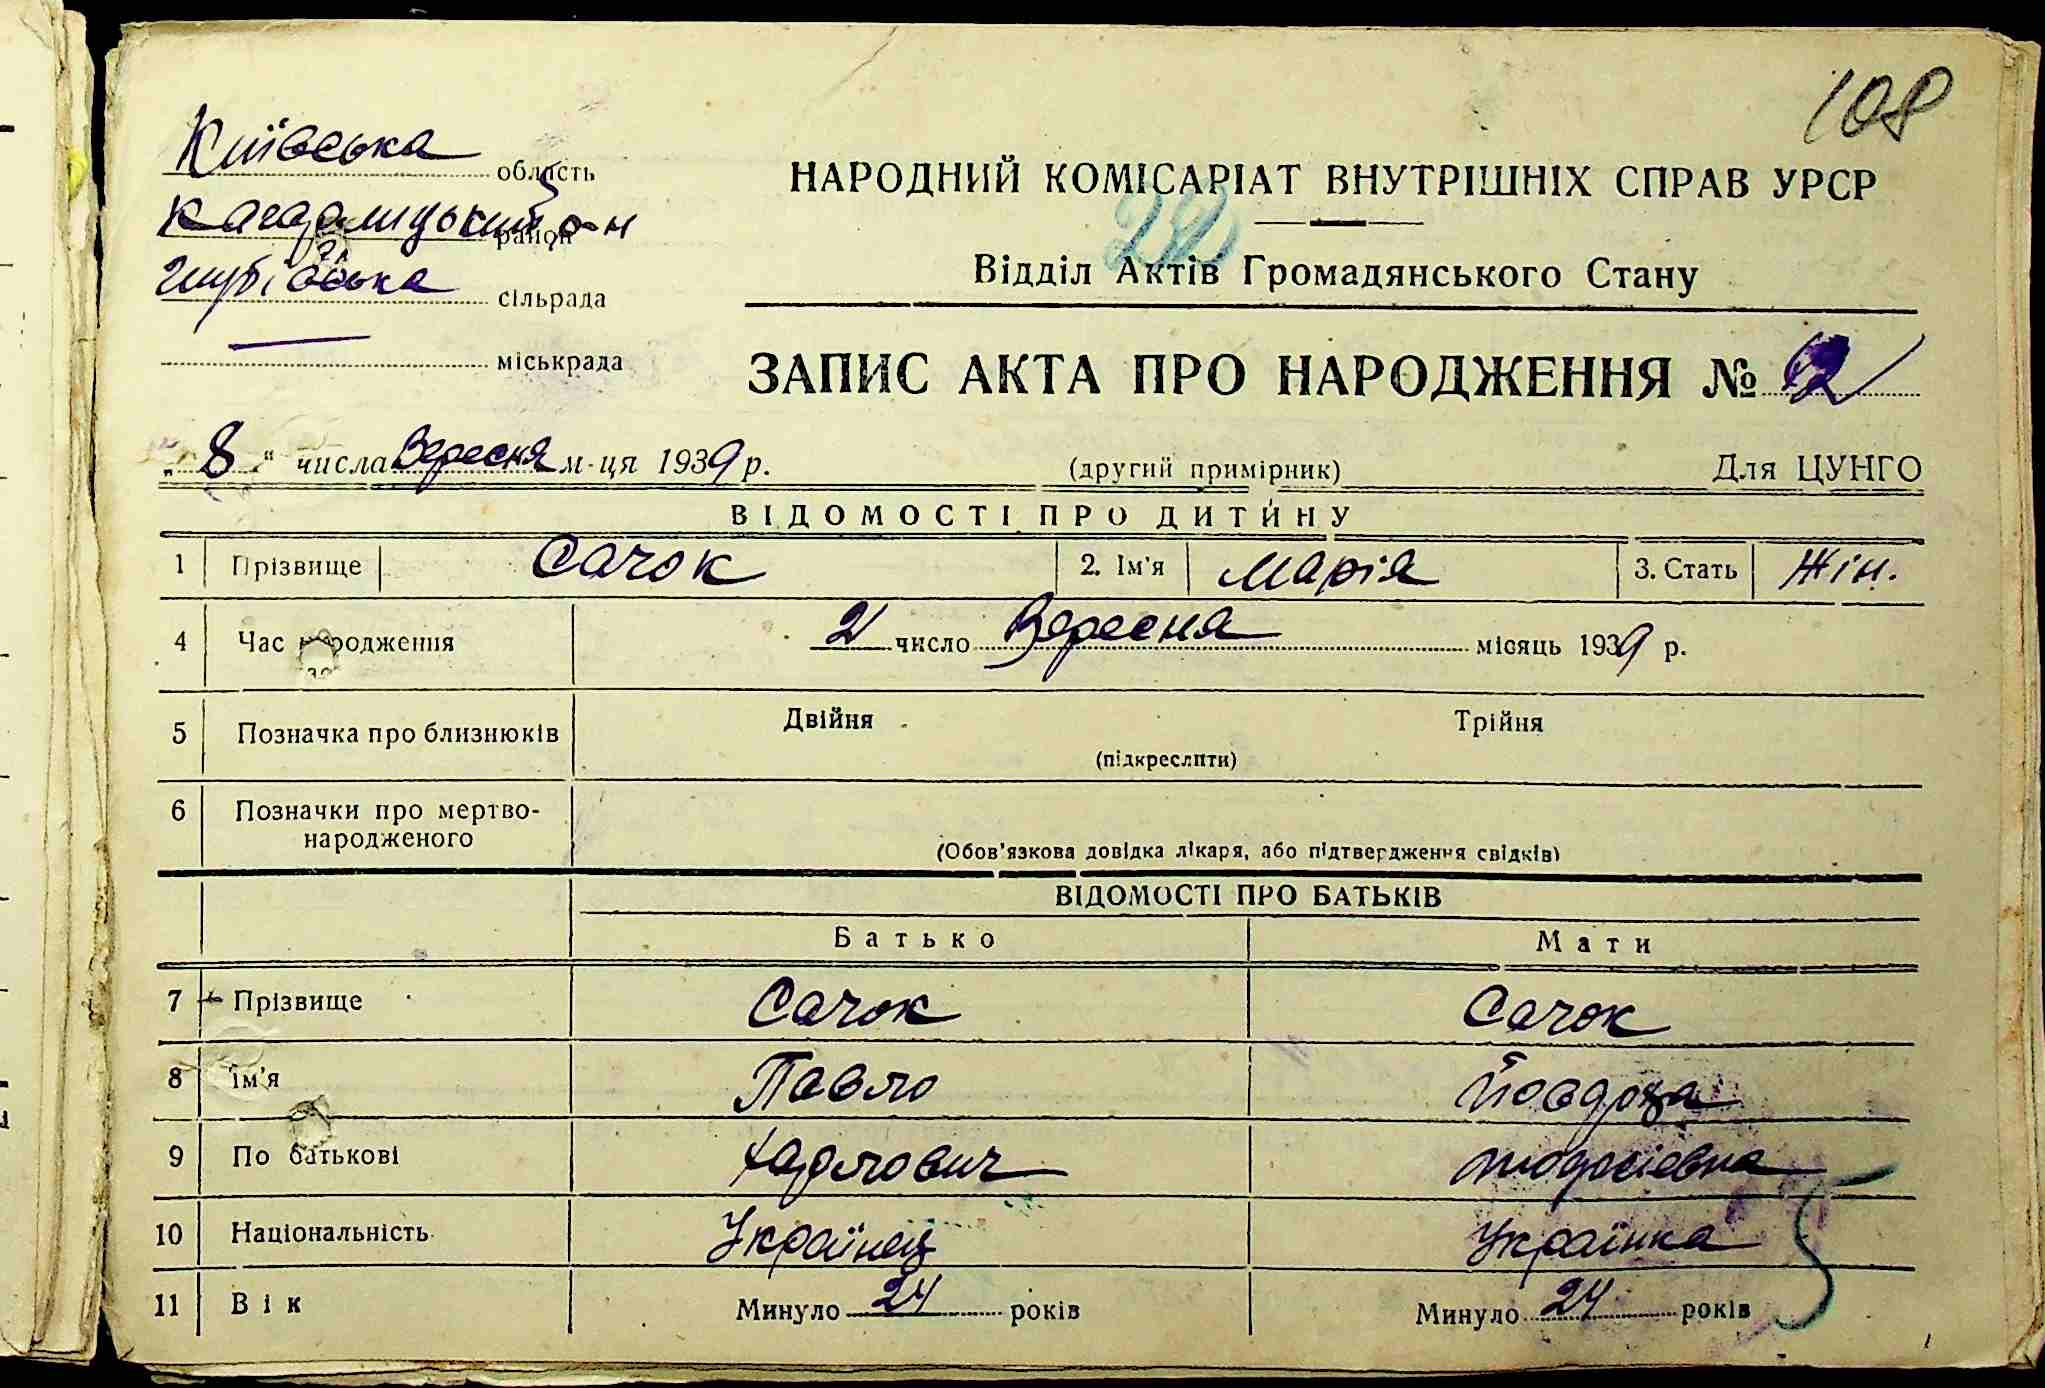 108
Київська область
Кагарлицький р-н район
сільрада
міськрада
НАРОДНИЙ КОМІСАРІАТ ВНУТРІШНІХ СПРАВ УРСР
22
Відділ Актів Громадянського Стану
ЗАПИС АКТА ПРО НАРОДЖЕННЯ №
„8“ числа Вересня м-ця 1939 р.
(другий примірник)
Для ЦУНГО
ВІДОМОСТІ ПРО ДИТИНУ
1 Прізвище Сачок 2. Ім'я Марія 3. Стать Жін.
4 Час народження 2 число Вересня місяць 1939 р.
5 Позначка про близнюків Двійня Трійня
(підкреслити)
6 Позначки про мертво-
народженого
(Обов'язкова довідка лікаря, або підтвердження свідків)
ВІДОМОСТІ ПРО БАТЬКІВ
Батько Мати
7 Прізвище Сачок Сачок
8 Ім'я Павло
9 По батькові
10 Національність Українец Українка
11 Вік Минуло 24 років Минуло 24 років
5